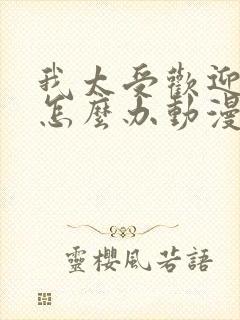 我太受歡迎
怎麼办動漫
靈櫻風若語